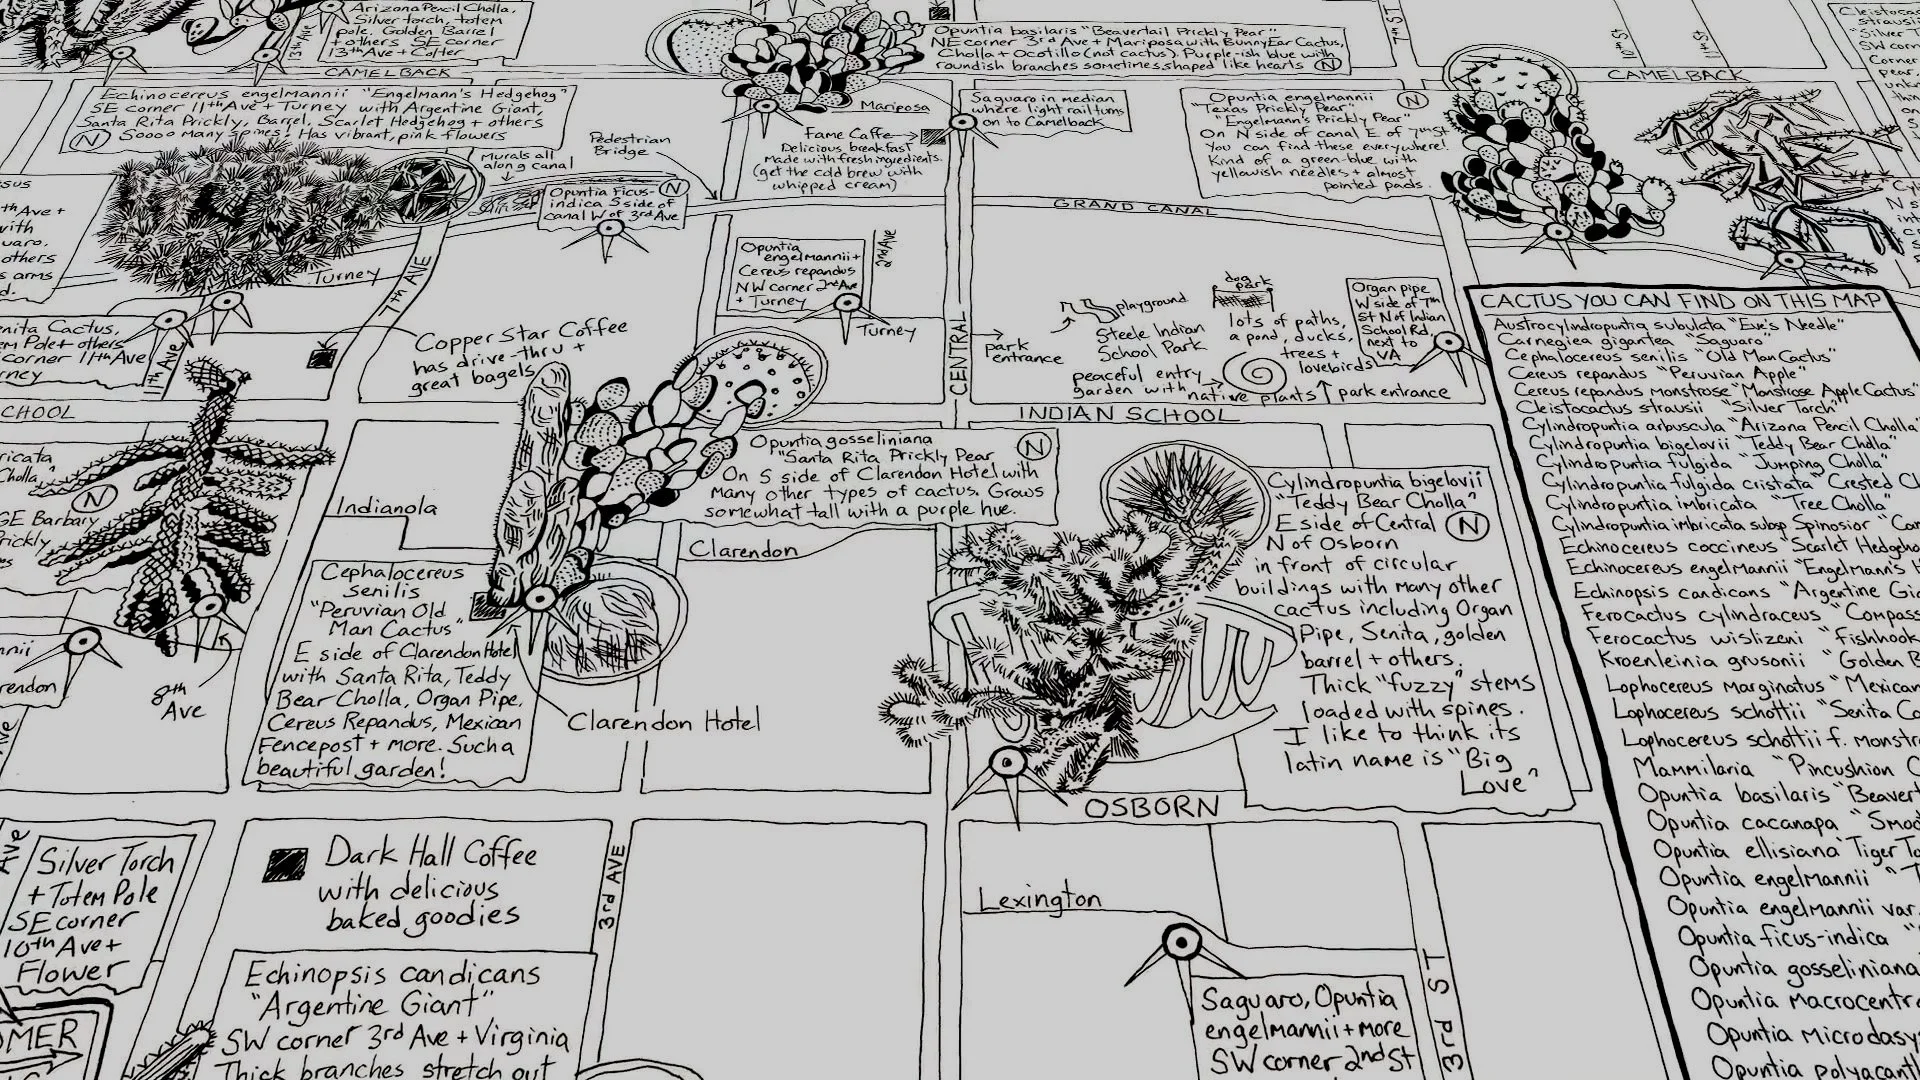 Arizona Pencil Cholla,
Silver torch, totem
pole. Golden Barrel
+ others SE corner
13th Ave + Colter
13th Ave
CAMELBACK
Opuntia basilaris "Beavertail Prickly Pear"
NE corner 3rd Ave + Mariposa with Bunny Ear Cactus,
Cholla + Ocotillo (not cactus). Purple-ish blue with
roundish branches sometimes shaped like hearts N
7th ST
10th ST
11th ST
CAMELBACK
Cleistocactus
strausii
"Silver T
SW corn
Corner
pear,
Echinocereus engelmannii "Engelmann's Hedgehog"
SE corner 11th Ave + Turney with Argentine Giant,
Santa Rita Prickly, Barrel, Scarlet Hedgehog + others
N Soooo many spines! Has vibrant, pink flowers
Mariposa
Saguaro in median
where light rail turns
on to Camelback
Opuntia engelmannii N
"Texas Prickly Pear"
"Engelmann's Prickly Pear"
On N side of canal E of 7th St
You can find these everywhere!
Kind of a green-blue with
yellowish needles + almost
pointed pads.
Fame Caffe
Delicious breakfast
Made with fresh ingredients.
(get the cold brew with
whipped cream)
Pedestrian
Bridge
Murals all
along canal
Opuntia Ficus- N
indica S side of
canal W of 3rd Ave
GRAND CANAL
Turney
7th AVE
11th AVE
Opuntia
engelmannii +
Cereus repandus
NW corner 2nd Ave
+ Turney
2nd Ave
Turney
CENTRAL
park
entrance
playground
Steele Indian
School Park
peaceful entry
garden with
native plants
dog
park
lots of paths,
a pond, ducks,
trees +
lovebirds
park entrance
Organ pipe
W side of 7th
St N of Indian
School Rd,
next to
VA
Copper Star Coffee
has drive-thru +
great bagels
enita Cactus,
em Pole + others
corner 11th Ave
rney
CHOOL
INDIAN SCHOOL
CACTUS YOU CAN FIND ON THIS MAP
Austrocylindropuntia subulata "Eve's Needle"
Carnegiea gigantea "Saguaro"
Cephalocereus senilis "Old Man Cactus"
Cereus repandus "Peruvian Apple"
Cereus repandus monstrose "Monstrose Apple Cactus"
Cleistocactus strausii "Silver Torch"
Cylindropuntia arbuscula "Arizona Pencil Cholla"
Cylindropuntia bigelovii "Teddy Bear Cholla"
Cylindropuntia fulgida "Jumping Cholla"
Cylindropuntia fulgida cristata "Crested Ch
Cylindropuntia imbricata "Tree Cholla"
Cylindropuntia imbricata subsp Spinosior "Can
Echinocereus coccineus "Scarlet Hedgeho
Echinocereus engelmannii "Engelmann's H
Echinopsis candicans "Argentine Gia
Ferocactus cylindraceus "Compass
Ferocactus wislizeni "Fishhook
Kroenleinia grusonii "Golden B
Lophocereus marginatus "Mexican
Lophocereus schottii "Senita Ca
Lophocereus schottii f. monstr
Mammilaria "Pincushion C
Opuntia basilaris "Beavert
Opuntia cacanapa "Smoo
Opuntia ellisiana "Tiger To
Opuntia engelmannii "T
Opuntia engelmannii var.
Opuntia ficus-indica "
Opuntia gosseliniana
Opuntia macrocentr
Opuntia microdasy
Opuntia polyacanth
Opuntia gosseliniana N
"Santa Rita Prickly Pear
On S side of Clarendon Hotel with
many other types of cactus. Grows
somewhat tall with a purple hue.
Indianola
Clarendon
Cephalocereus
senilis
"Peruvian Old
Man Cactus"
E side of Clarendon Hotel
with Santa Rita, Teddy
Bear Cholla, Organ Pipe,
Cereus Repandus, Mexican
Fencepost + more. Such a
beautiful garden!
Clarendon Hotel
Cylindropuntia bigelovii
"Teddy Bear Cholla"
E side of Central N
N of Osborn
in front of circular
buildings with many other
cactus including Organ
Pipe, Senita, golden
barrel + others.
Thick "fuzzy" stems
loaded with spines.
I like to think its
latin name is "Big
Love"
ricata
Cholla"
N
GE Barbary
rickly
8th
Ave
nnii
rendon
OSBORN
Silver Torch
+ Totem Pole
SE corner
10th Ave +
Flower
Dark Hall Coffee
with delicious
baked goodies
3rd AVE
Lexington
Saguaro, Opuntia
engelmannii + more
SW corner 2nd St
3rd ST
Echinopsis candicans
"Argentine Giant"
SW corner 3rd Ave + Virginia
Thick branches stretch out
OMER